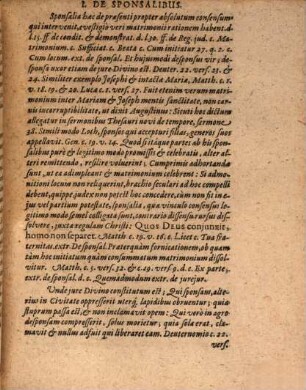 I. DE SPONSALIBUS.
Sponsalia hac de præsenti propter absolutum consensum
qui intervenit, è vestigio veri matrimonii rationem habent. d.
l. 15. ff. de condit. & demonstrat. d. l. 30. ff. de Reg. jud. c. Ma-
trimonium. c. Sufficiat. c. Beata c. Cum initiatur 27. q. 2. c.
Cum locum. ext. de sponsal. Et hujusmodi desponsati vir; de-
sponsæ uxor etiam de jure Divino est. Deuter. 22. vers. 23. &
24. Similiter exemplo Josephi & intactæ Mariæ, Matth. 1.
v. 16. 19. & 20. Luca. 1. vers. 27. Fuit etenim verum matrimo-
nium inter Mariam & Joseph mentis sanctitate, non car-
nis incorruptibilitate, ut dixit Augustinus: Sicut hoc dictum
allegatur in sermonibus Thesauri novi de tempore, sermone
98. Simili modo Loth, sponsos qui accepturi filias, generos suos
appellavit. Gen. c. 19. v. 14. Quod si itaque partes ab his sponsa-
libus puro & legitimo modo promissis & celebratis, alter al-
teri remittendo, resilire voluerint; Cumprimis adhortandæ
sunt, ut ea adimpleant & matrimonium celebrent: Si ad-
monitionibus locum non reliquerint, brachio seculari ad hoc compelli
debent, quippe, judex non potest hoc concedere, cum non sit in
jus vel partium potestate, sponsalia, quæ vinculo consensus le-
gitimo modo semel colligata sunt, contrario dissensu rursus dissol-
vere, juxta regulam Christi: Quos Deus conjunxit,
homo non separet. Matth. c. 19. v. 16. c. Licet 2. Tua fra-
ternitas. extr. De sponsal. Præterquam fornicationem, ob quam
tàm hoc initiatum quàm consummatum matrimonium dissol-
vitur. Matth. c. 5. vers. 32. & c. 19. vers. 9. d. c. Ex parte,
extr. de sponsal. d. c. Quemadmodum extr. de jurejur.
Unde jure Divino constitutum est; Qui sponsam, al-
terius in Civitate oppresserit uterq́; lapidibus obruentur; quia
stuprum passa est, & non inclamavit opem: Qui verò in agro
desponsam compresserit, solus morietur; quia sola erat, cla-
mavit & nullus adfuit qui liberaret eam. Deuteronomio c. 22.
vers.